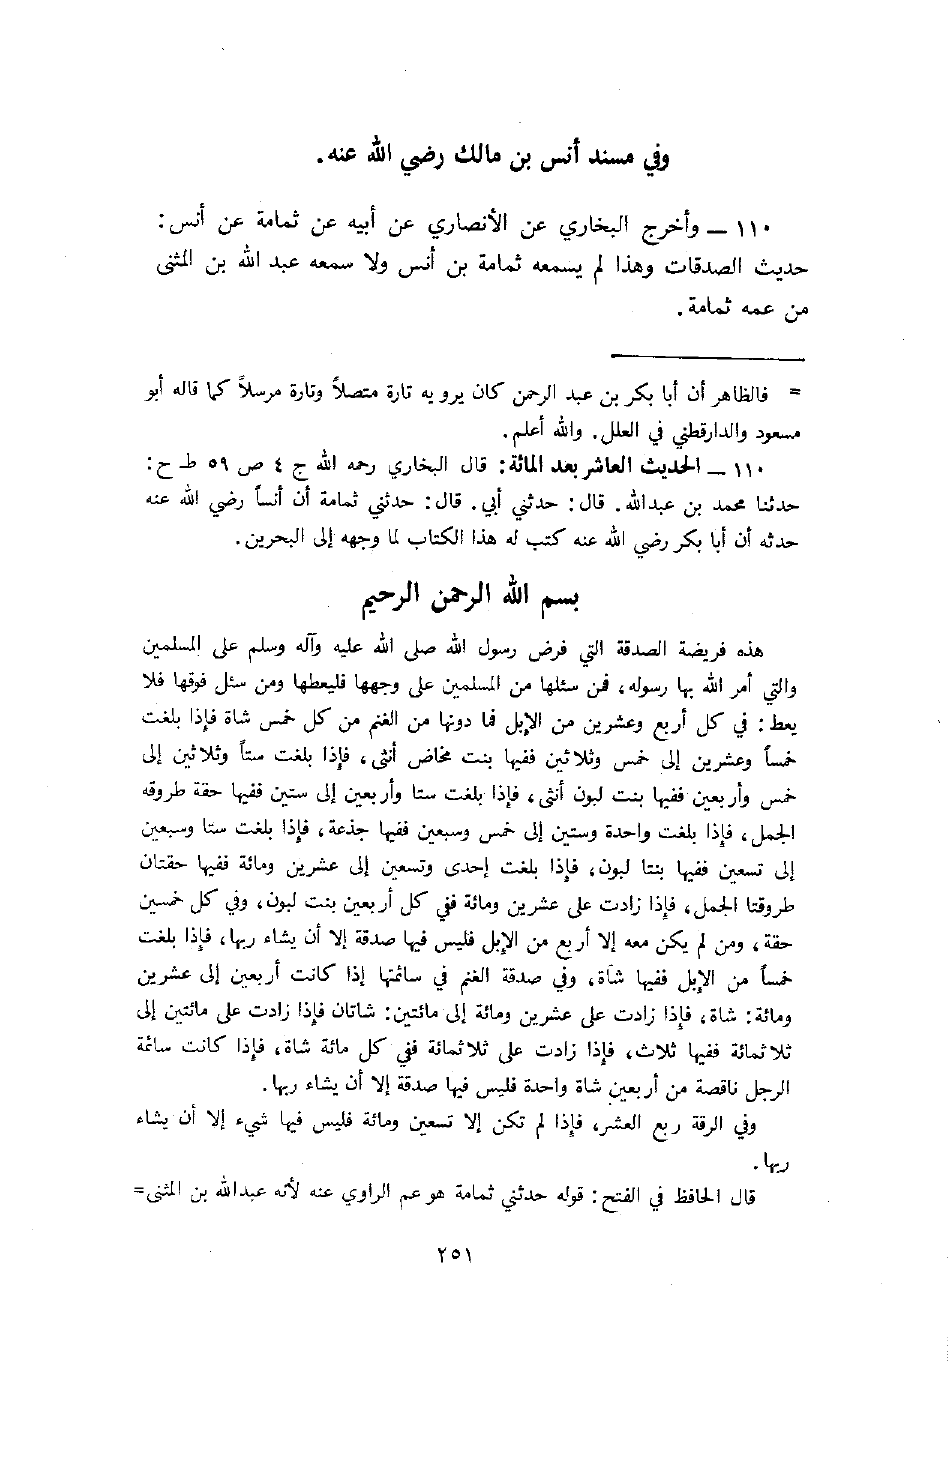 وفي مسند أنس بن مالك رضي الله عنه.
١١٠ ــ وأخرج البخاري عن الأنصاري عن أبيه عن ثمامة عن أنس:
حديث الصدقات وهذا لم يسمعه ثمامة بن أنس ولا سمعه عبد الله بن المثنى
من عمه ثمامة.
= فالظاهر أن أبا بكر بن عبد الرحمن كان يرويه تارة متصلاً وتارة مرسلاً كما قاله أبو
مسعود والدارقطني في العلل. والله أعلم.
١١٠ ــ الحديث العاشر بعد المائة: قال البخاري رحمه الله ج ٤ ص ٥٩ ط ح:
حدثنا محمد بن عبدالله. قال: حدثني أبي. قال: حدثني ثمامة أن أنساً رضي الله عنه
حدثه أن أبا بكر رضي الله عنه كتب له هذا الكتاب لما وجهه إلى البحرين.
بسم الله الرحمن الرحيم
هذه فريضة الصدقة التي فرض رسول الله صلى الله عليه وآله وسلم على المسلمين
والتي أمر الله بها رسوله، فمن سئلها من المسلمين على وجهها فليعطها ومن سئل فوقها فلا
يعط: في كل أربع وعشرين من الإبل فما دونها من الغنم من كل خمس شاة فإذا بلغت
خمساً وعشرين إلى خمس وثلاثين ففيها بنت مخاض أنثى، فإذا بلغت ستاً وثلاثين إلى
خمس وأربعين ففيها بنت لبون أنثى، فإذا بلغت ستا وأربعين إلى ستين ففيها حقة طروقه
الجمل، فإذا بلغت واحدة وستين إلى خمس وسبعين ففيها جذعة، فإذا بلغت ستا وسبعين
إلى تسعين ففيها بنتا لبون، فإذا بلغت إحدى وتسعين إلى عشرين ومائة ففيها حقتان
طروقتا الجمل، فإذا زادت على عشرين ومائة ففي كل أربعين بنت لبون، وفي كل خمسين
حقة، ومن لم يكن معه إلا أربع من الإبل فليس فيها صدقة إلا أن يشاء ربها، فإذا بلغت
خمساً من الإبل ففيها شأة، وفي صدقة الغنم في سائمتها إذا كانت أربعين إلى عشرين
ومائة: شاة، فإذا زادت على عشرين ومائة إلى مائتين: شاتان فإذا زادت على مائتين إلى
ثلاثمائة ففيها ثلاث، فإذا زادت على ثلاثمائة ففي كل مائة شاة، فإذا كانت سائمة
الرجل ناقصة من أربعين شاة واحدة فليس فيها صدقة إلا أن يشاء ربها.
وفي الرقة ربع العشر، فإذا لم تكن إلا تسعين ومائة فليس فيها شيء إلا أن يشاء
ربها.
قال الحافظ في الفتح: قوله حدثني ثمامة هو عم الراوي عنه لأنه عبدالله بن المثنى=
٢٥١